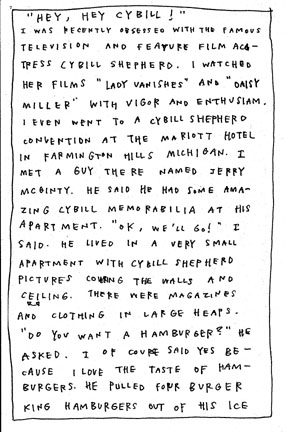 "HEY, HEY CYBILL!"
I WAS RECENTLY OBSESSED WITH THE FAMOUS
TELEVISION AND FEATURE FILM AC-
TRESS CYBILL SHEPHERD. I WATCHED
HER FILMS "LADY VANISHES" AND "DAISY
MILLER" WITH VIGOR AND ENTHUSIASM.
I EVEN WENT TO A CYBILL SHEPHERD
CONVENTION AT THE MARIOTT HOTEL
IN FARMINGTON HILLS MICHIGAN. I
MET A GUY THERE NAMED JERRY
MCGINTY. HE SAID HE HAD SOME AMA-
ZING CYBILL MEMORABILIA AT HIS
APARTMENT. "OK, WE'LL GO!" I
SAID. HE LIVED IN A VERY SMALL
APARTMENT WITH CYBILL SHEPHERD
PICTURES THE WALLS AND
CEILING. THERE WERE MAGAZINES
AND CLOTHING IN LARGE HEAPS.
"DO YOU WANT A HAMBURGER?" HE
ASKED. I OF COURSE SAID YES BE-
CAUSE I LOVE THE TASTE OF HAM-
BURGERS. HE PULLED FOUR BURGER
KING HAMBURGERS OUT OF HIS ICE